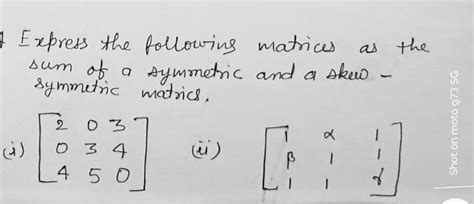 Express the following matrices as the
sum of a symmetric and a skew -
symmetric matrics.
(i) [2 0 3
0 3 4
4 5 0]
(ii) [1 α 1
β 1 1
1 1 γ]
Shot on moto g73 5G